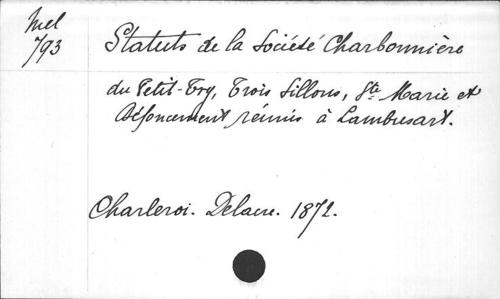 Mel
793
Statuts de la Société Charbonnière
du Petit-Try, Trois Sillons, Ste Marie et
Défoncement réunis à Lambusart.
Charleroi. Delacre. 1872.